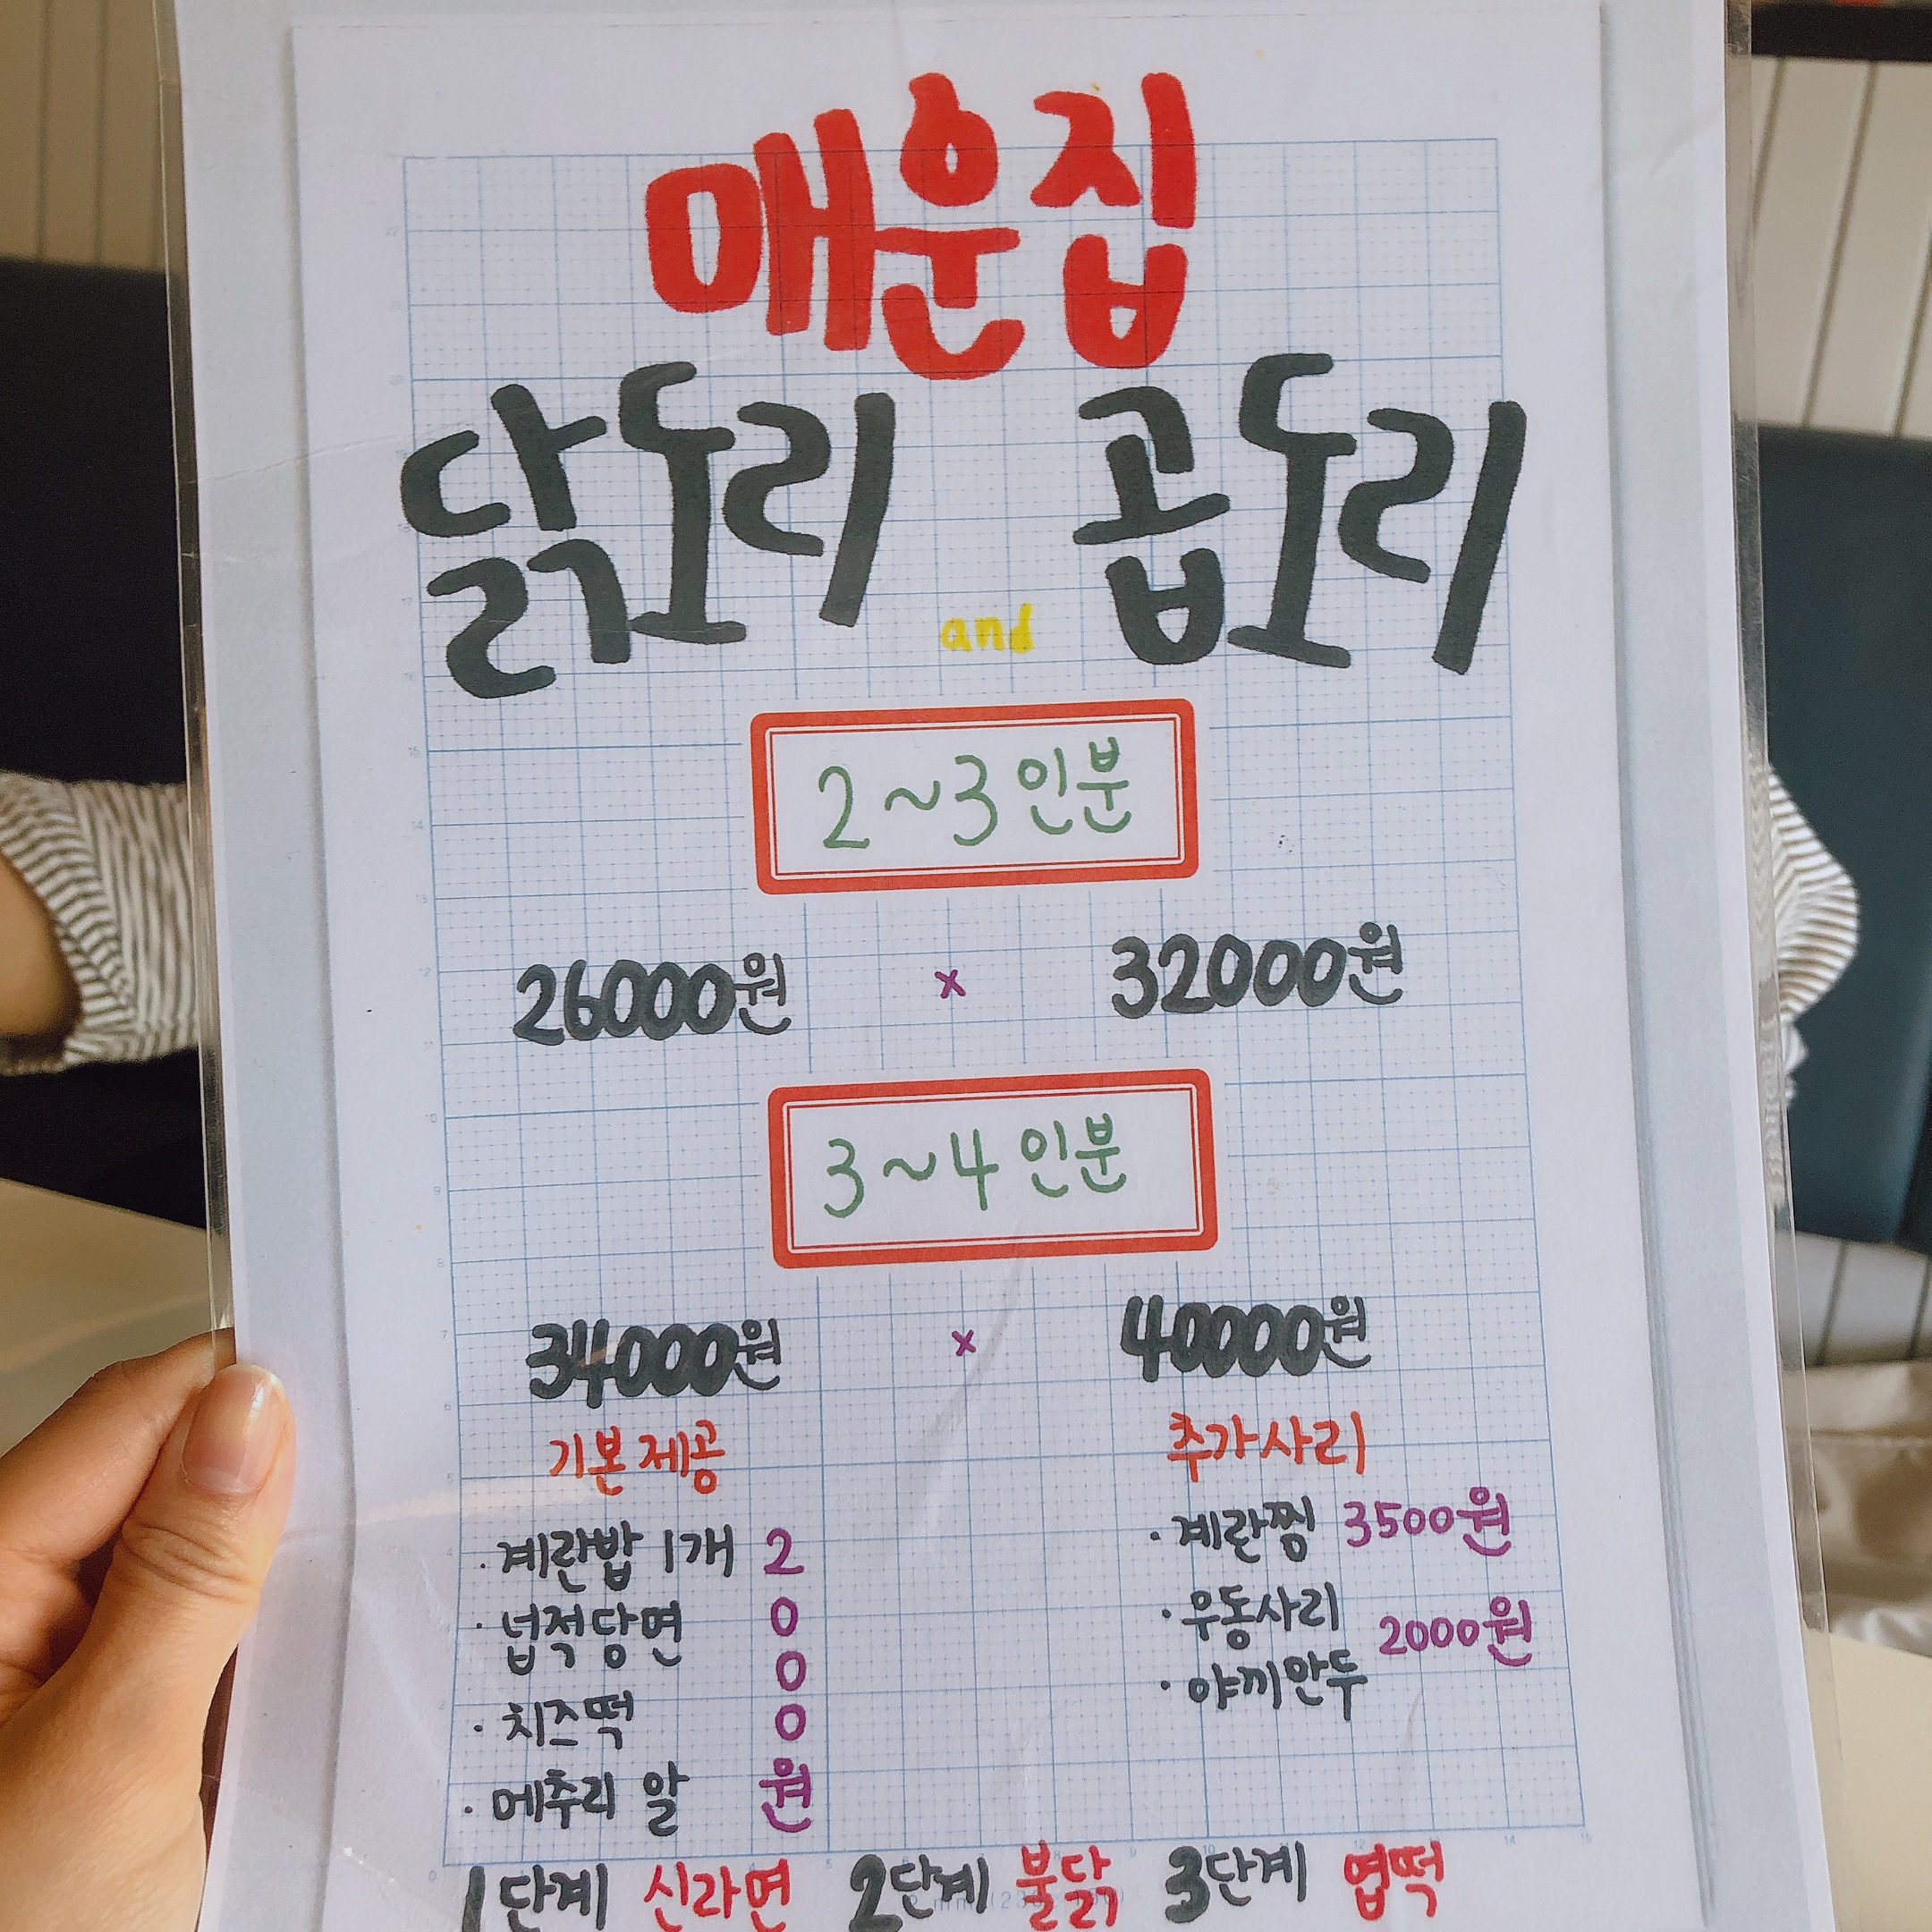 매운집
닭도리 and 곱도리
2~3인분
26000원 x 32000원
3~4인분
34000원 x 40000원
기본제공
· 계란밥 1개
· 넙적당면
· 치즈떡
· 메추리 알
2000원
추가사리
· 계란찜 3500원
· 우동사리
· 야끼만두
2000원
1단계 신라면 2단계 불닭 3단계 엽떡